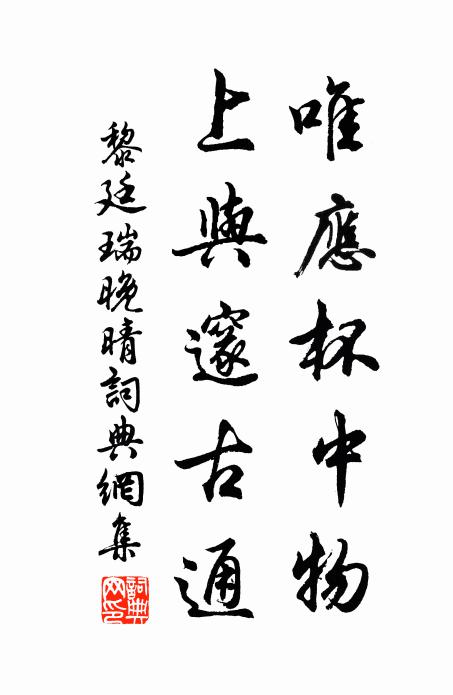 唯應杯中物
上與邃古通
黎廷瑞晚晴詞典網集
詞典網印